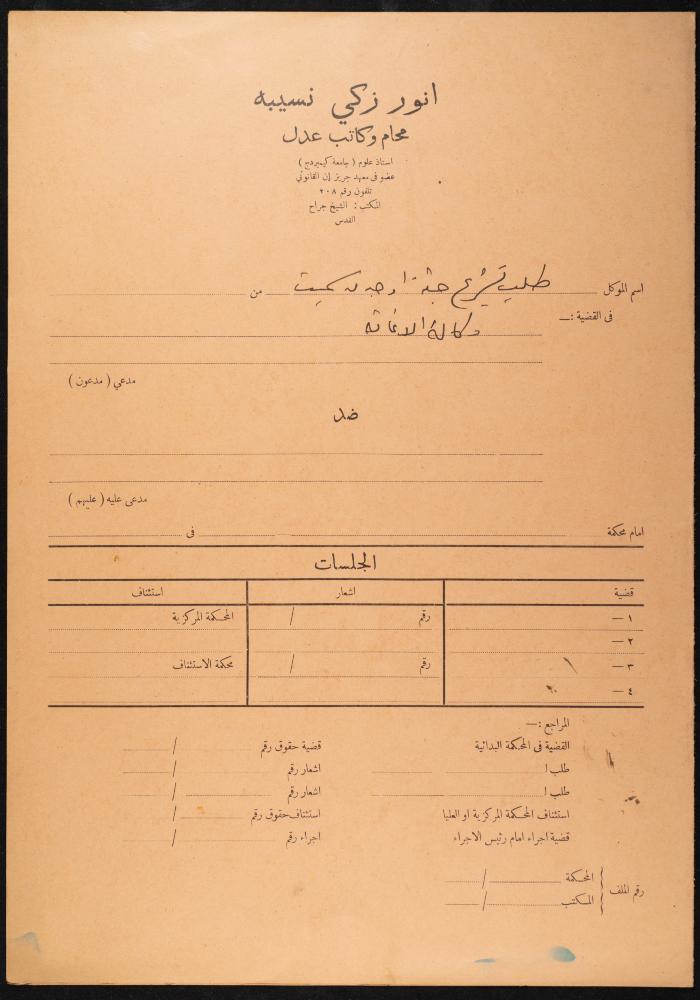 انور زكي نسيبه
محام وكاتب عدل
استاذ علوم ( جامعة كيمبردج )
عضو فى معهد جريز إن القانوني
تلفون رقم ٢٠٨
المكتب : الشيخ جراح
القدس
اسم الموكل طلب تشريح جثة من
فى القضية :— وكالة الاغاثه
مدعي ( مدعون )
ضد
مدعى عليه ( عليهم )
امام محكمة فى
الجلسات
قضية اشعار استئناف
١ — رقم / المحكمة المركزية
٢ —
٣ — رقم / محكمة الاستئناف
٤ —
المراجع :—
القضية فى المحكمة البدائية قضية حقوق رقم /
طلب ا اشعار رقم /
طلب ا اشعار رقم /
استئناف المحكمة المركزية او العليا استئناف حقوق رقم /
قضية اجراء امام رئيس الاجراء اجراء رقم /
رقم الملف { المحكمة /
المكتب /